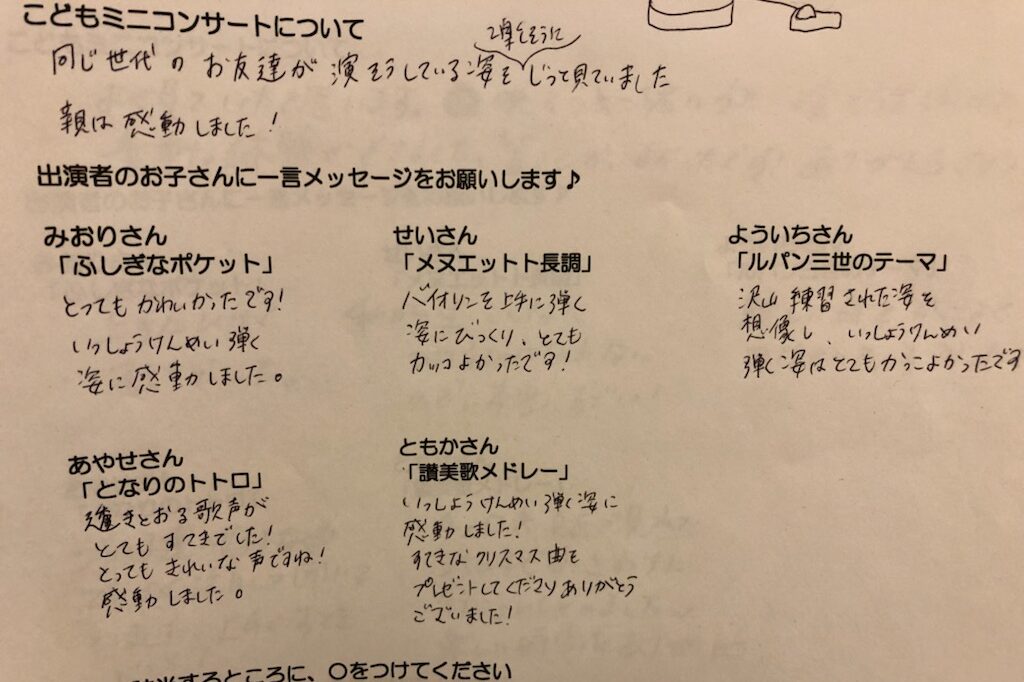 こどもミニコンサートについて
楽しそうに
同じ世代のお友達が演そうしている姿をじっと見ていました
親は感動しました！
出演者のお子さんに一言メッセージをお願いします♪
みおりさん
「ふしぎなポケット」
とってもかわいかったです！
いっしょうけんめい弾く
姿に感動しました。
せいさん
「メヌエットト長調」
バイオリンを上手に弾く
姿にびっくり、とても
カッコよかったです！
よういちさん
「ルパン三世のテーマ」
沢山練習された姿を
想像し、いっしょうけんめい
弾く姿はとてもかっこよかったです
あやせさん
「となりのトトロ」
透きとおる歌声が
とてもすてきでした！
とってもきれいな声ですね！
感動しました。
ともかさん
「讃美歌メドレー」
いっしょうけんめい弾く姿に
感動しました！
すてきなクリスマス曲を
プレゼントしてくださりありがとう
ございました！
するところに、○をつけてください